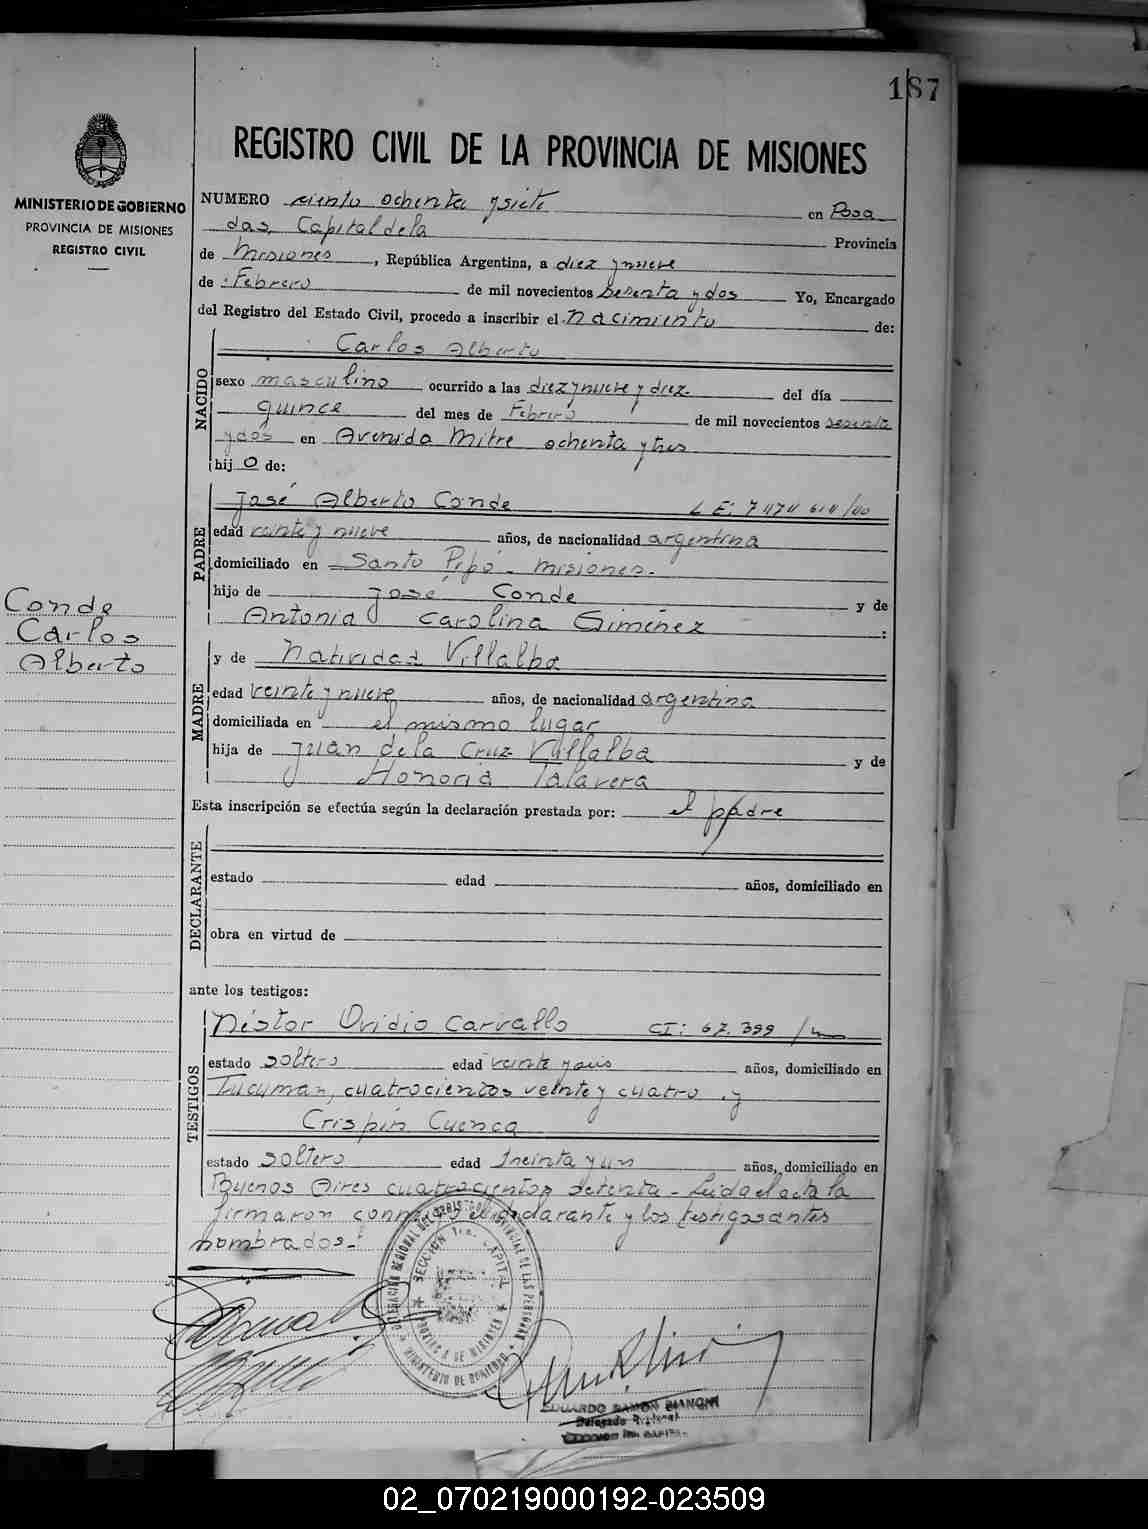 187
REGISTRO CIVIL DE LA PROVINCIA DE MISIONES
MINISTERIO DE GOBIERNO
PROVINCIA DE MISIONES
REGISTRO CIVIL
NUMERO ciento ochenta y siete en Posa
das, Capital de la Provincia
de Misiones, República Argentina, a diez y nueve
de Febrero de mil novecientos sesenta y dos Yo, Encargado
del Registro del Estado Civil, procedo a inscribir el nacimiento de:
NACIDO
Carlos Alberto
sexo masculino ocurrido a las diez y nueve y diez del día
quince del mes de Febrero de mil novecientos sesenta
y dos en Avenida Mitre ochenta y tres
hijo de:
PADRE
José Alberto Conde L E: 7474 614/40
edad veinte y nueve años, de nacionalidad argentina
domiciliado en Santo Pipó - Misiones.
hijo de José Conde y de
Antonia Carolina Giménez :
MADRE
y de Natividad Villalba
edad veinte y nueve años, de nacionalidad argentina
domiciliada en el mismo lugar
hija de Juan de la Cruz Villalba y de
Honoria Talavera
Conde
Carlos
Alberto
Esta inscripción se efectúa según la declaración prestada por: el padre
DECLARANTE
estado edad años, domiciliado en
obra en virtud de
ante los testigos:
TESTIGOS
Néstor Ovidio Carvallo CI: 67.399
estado soltero edad veinte y seis años, domiciliado en
Tucuman, cuatrocientos veinte y cuatro y
Crispin Cuenca
estado soltero edad treinta y un años, domiciliado en
Buenos Aires cuatrocientos setenta - Leida el acta la
firmaron conmigo el declarante y los testigos antes
nombrados.-
SECCION 1ra. CAPITAL
PROVINCIA DE MISIONES
MINISTERIO DE GOBIERNO
EDUARDO RAMON BIANCHI
Delegado Regional
SECCION 1ra. CAPITAL
02_070219000192-023509